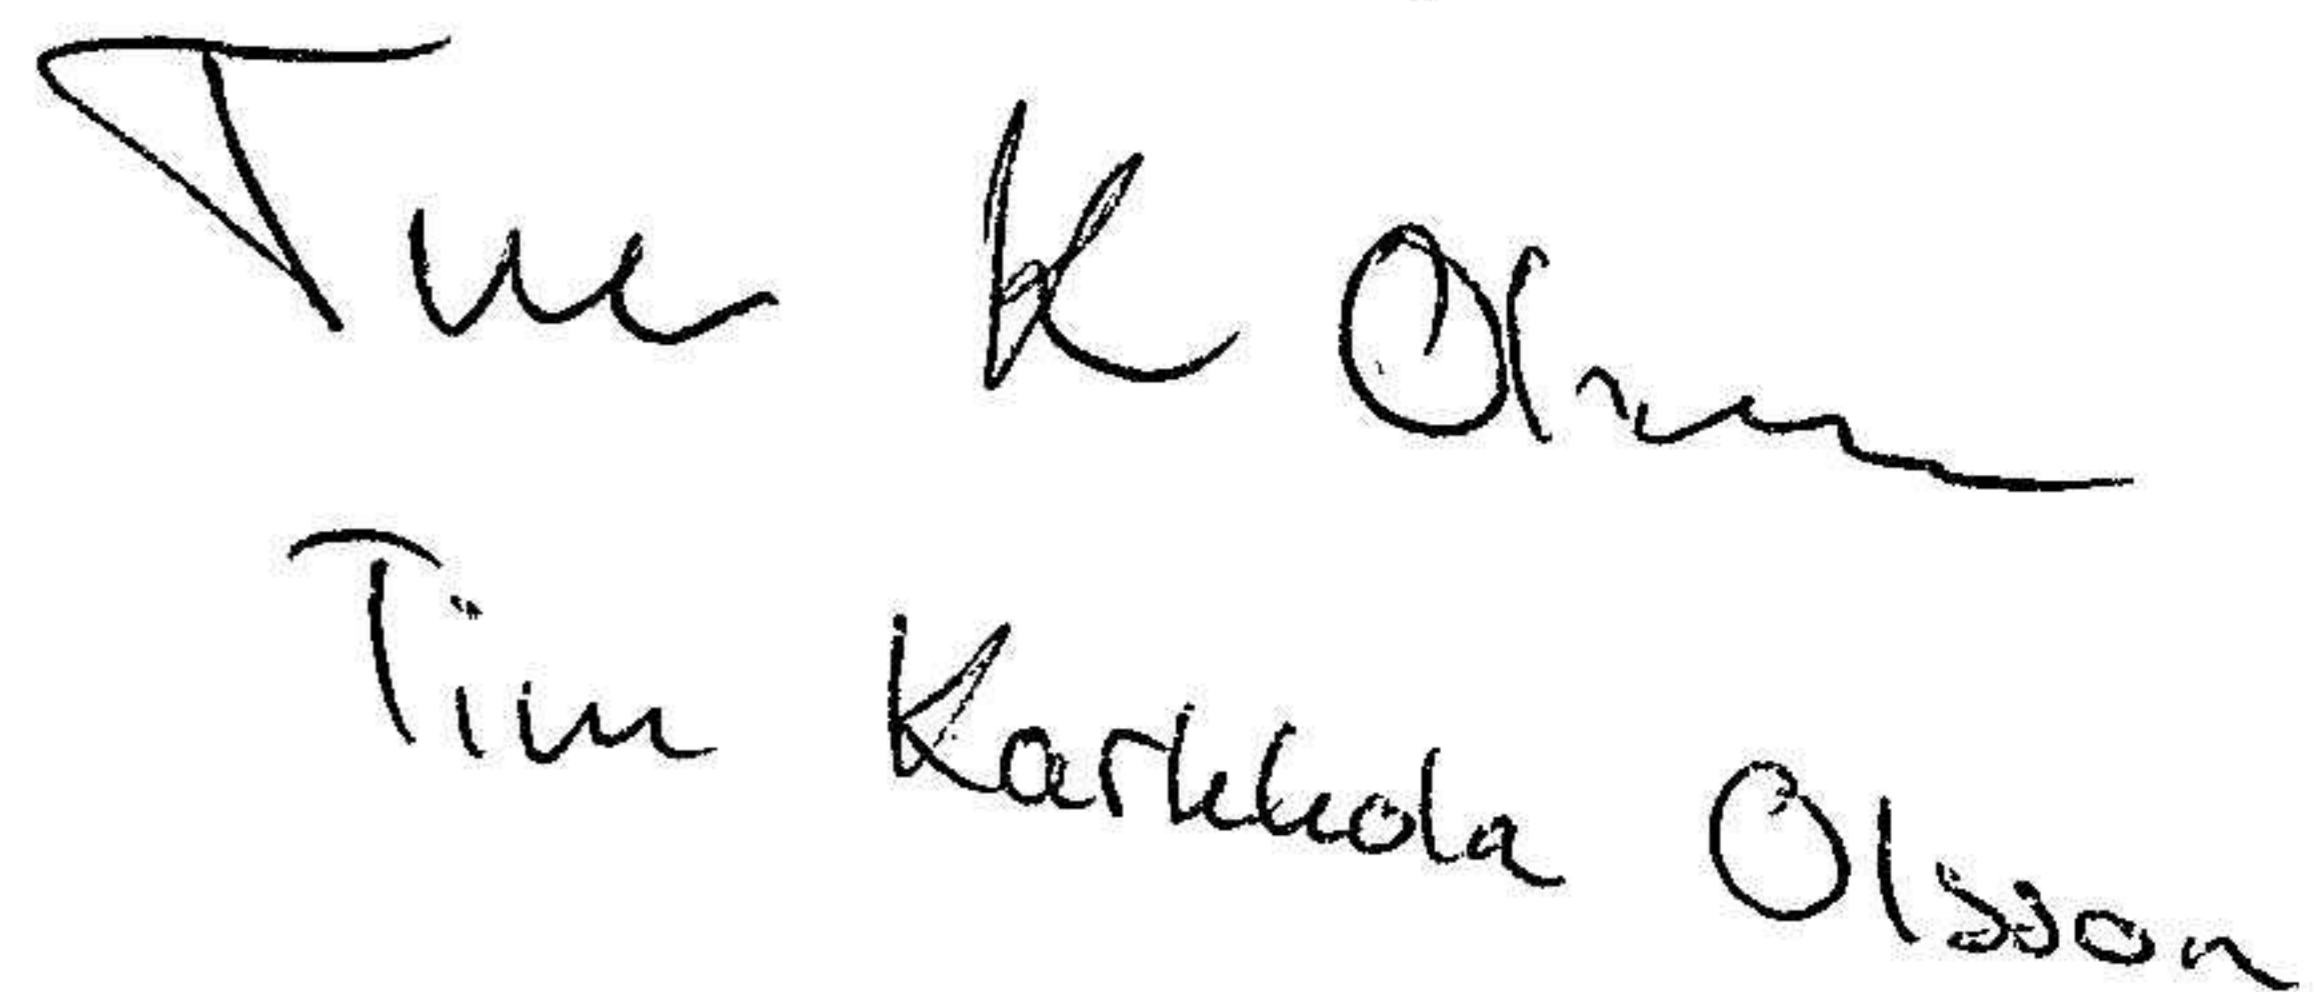 Tim K Olsson
Tim Karkkola Olsson